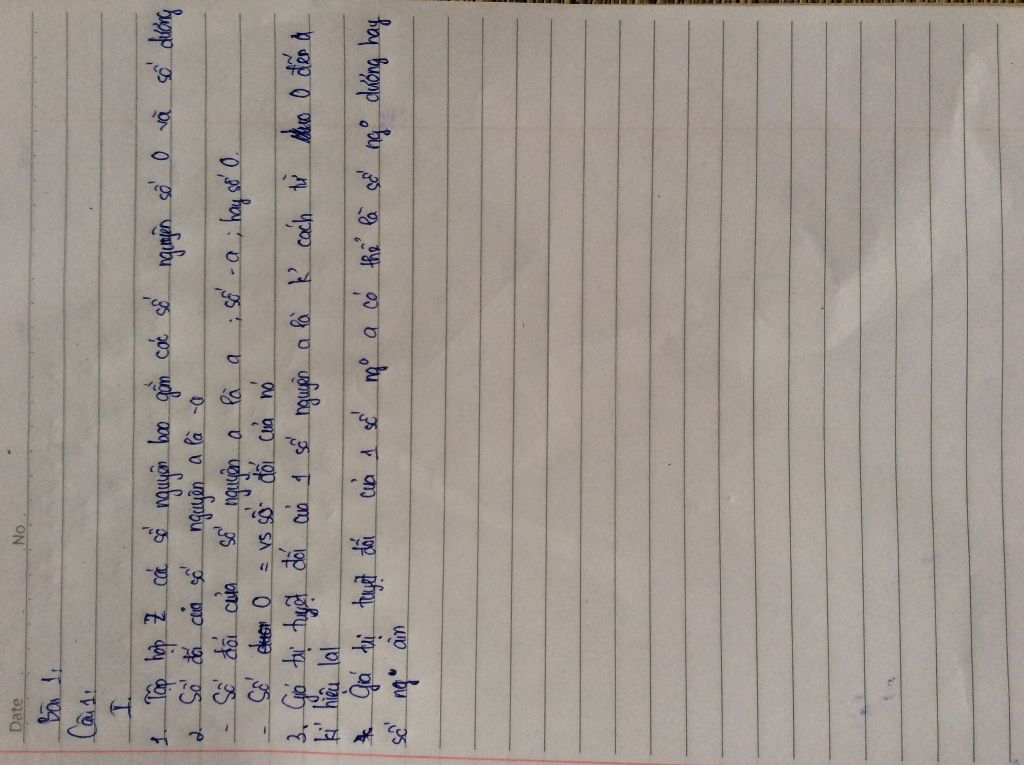 Date No
Bài 1:
Câu 1:
I.
1. Tập hợp Z các số nguyên bao gồm các số nguyên số 0 và số dương
2. Số đối của số nguyên a là -a
- Số đối của số nguyên a là a ; số -a ; hay số 0.
- Số 0 = vs số đối của nó
3. Giá trị tuyệt đối của 1 số nguyên a là k' cách từ 0 đến a
kí hiệu |a|
Giá trị tuyệt đối của 1 số ng° a có thể là số ng° dương hay
số ng° âm